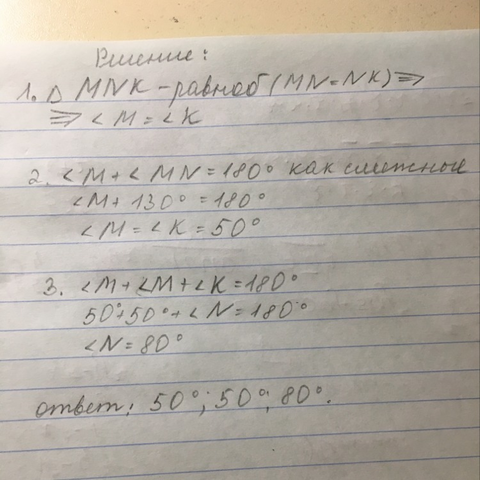 Решение:
1. △ MNK - равноб (MN=NK) ⇒
⇒ ∠M = ∠K
2. ∠M + ∠MN = 180° как смежные
∠M + 130° = 180°
∠M = ∠K = 50°
3. ∠M + ∠M + ∠K = 180°
50° + 50° + ∠N = 180°
∠N = 80°
ответ: 50°; 50°; 80°.